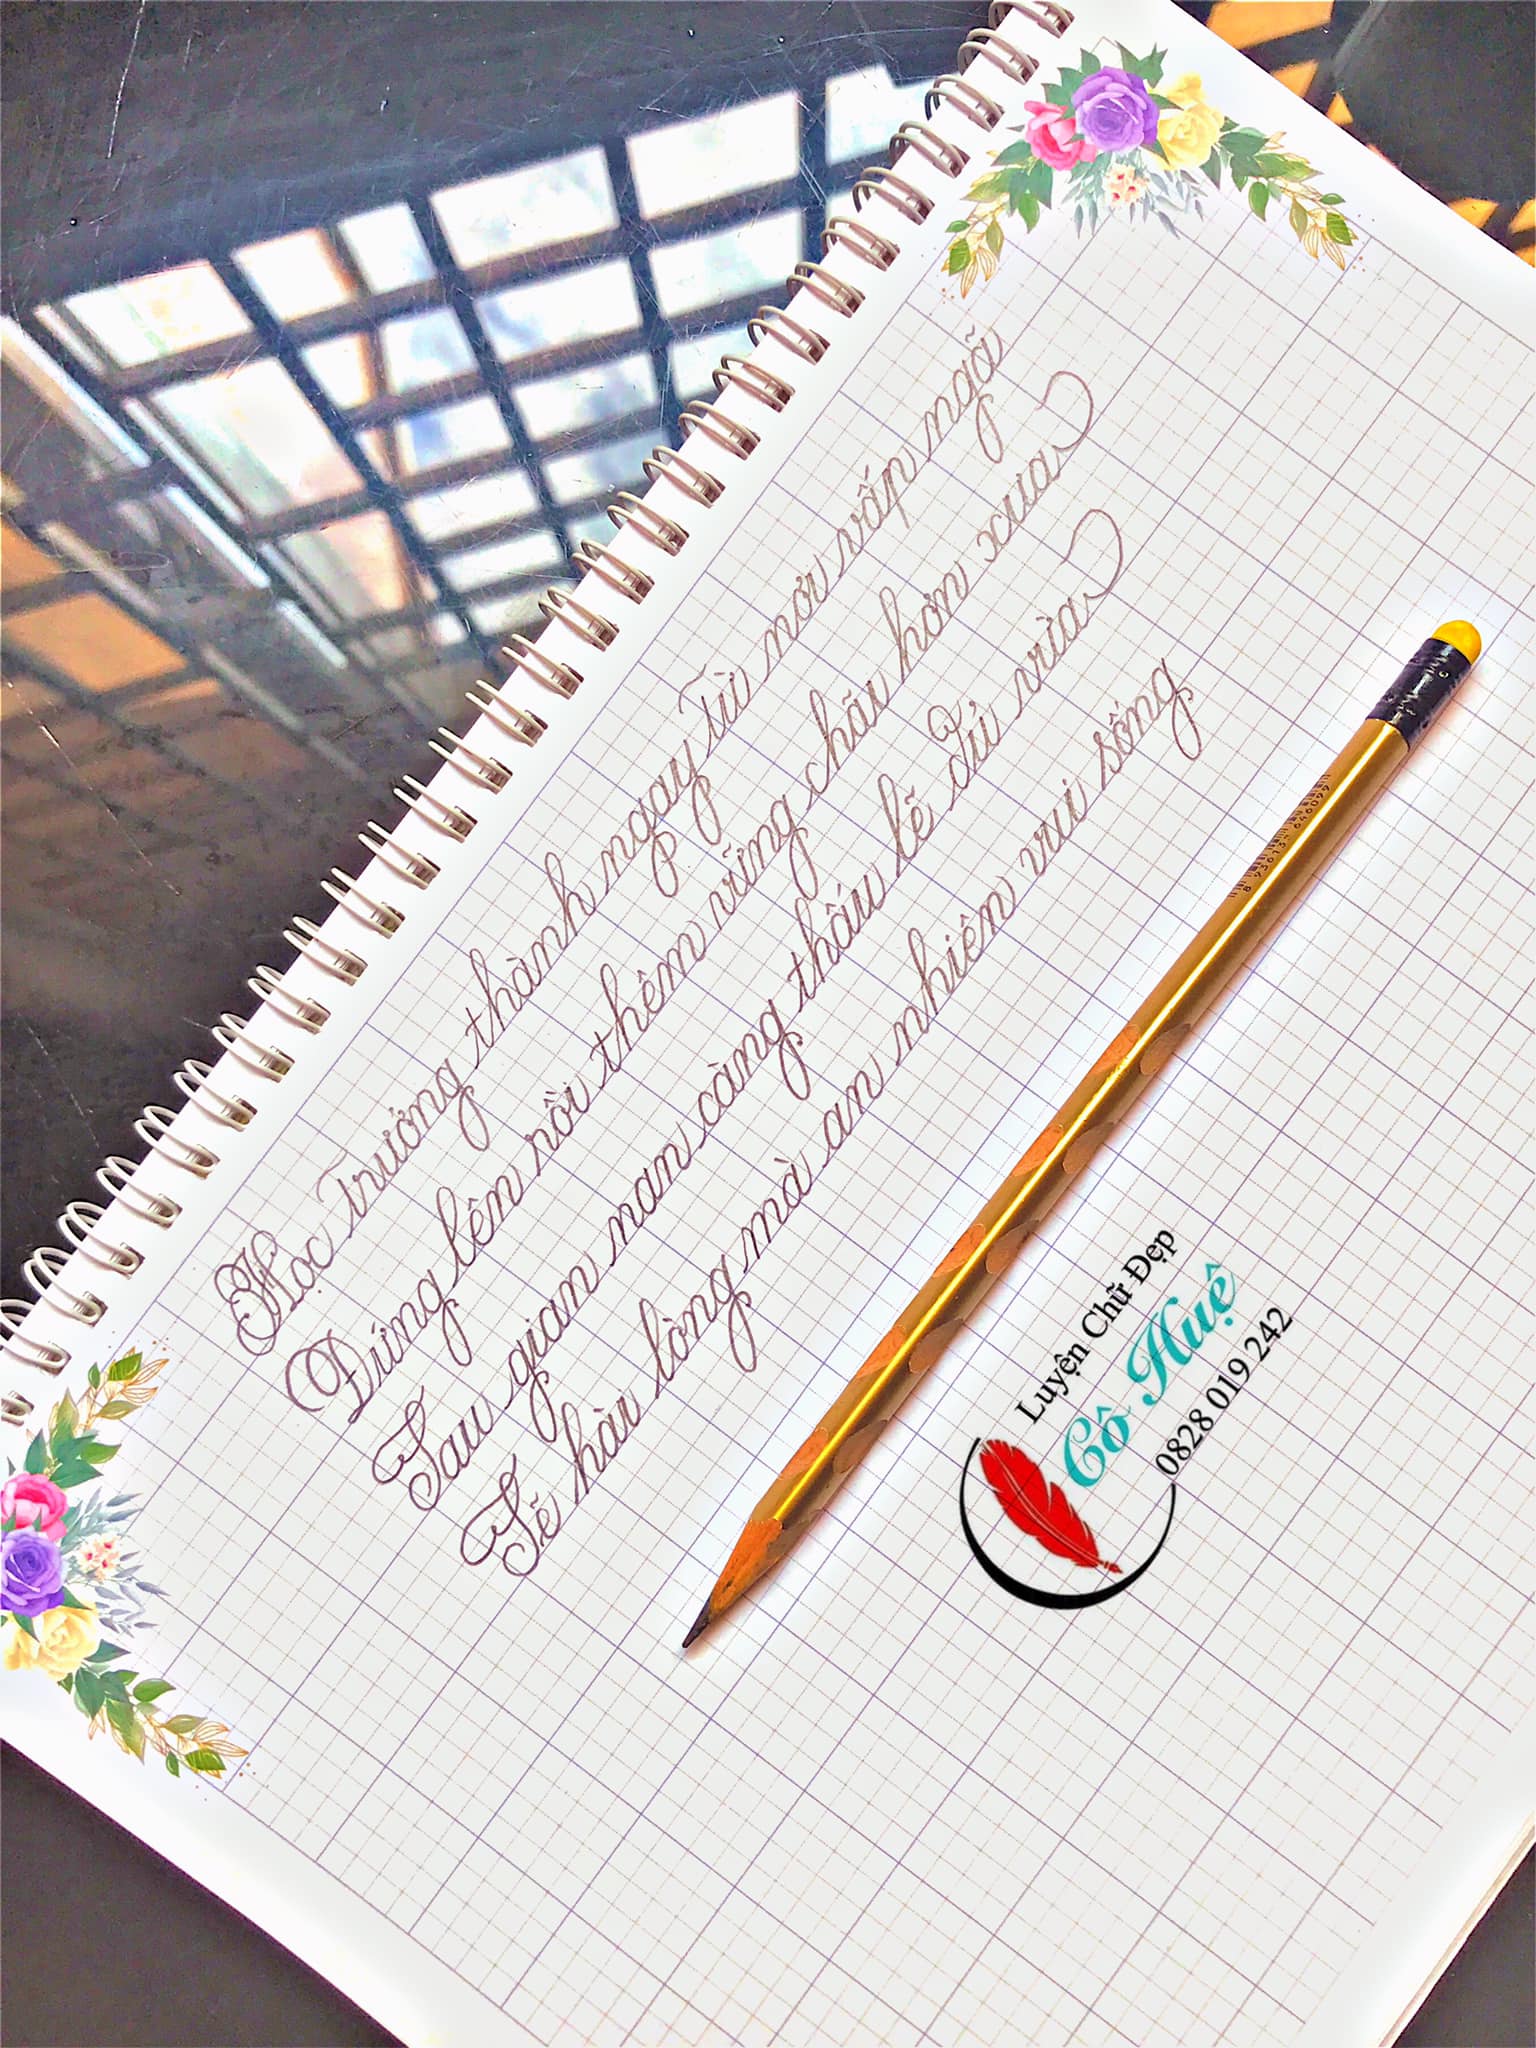 Học trưởng thành ngay từ nơi vấp ngã
Đứng lên rồi thêm vững chãi hơn xưa
Sau gian nan càng thấu lẽ đủ vừa
Sẽ hài lòng mà an nhiên vui sống
Luyện Chữ Đẹp
Cô Huệ
0828 019 242
8 936134 646099